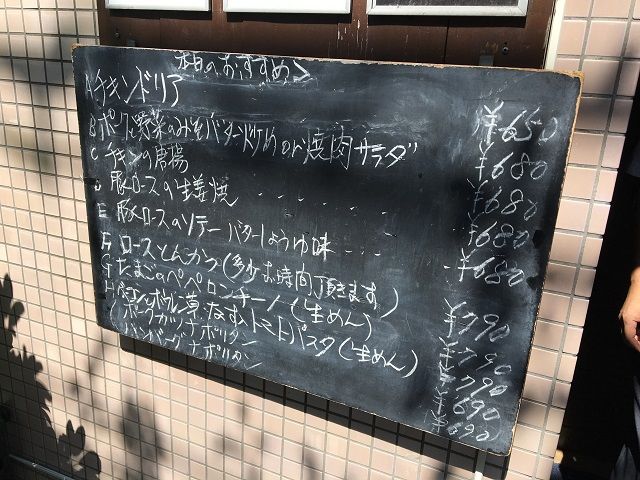 本日のおすすめ
A チキンドリア ¥650
B ポークと野菜のみそバター炒め or 焼肉サラダ ¥680
C チキンの唐揚 ¥680
D 豚ロースの生姜焼 ¥680
E 豚ロースのソテー バターしょうゆ味 ¥680
F ロースとんかつ (多少お時間頂きます) ¥790
G たまごのペペロンチーノ (生めん) ¥790
H ベーコン、ホウレン草、なす、トマトパスタ (生めん) ¥790
ポークカツナポリタン ¥690
ハンバーグナポリタン ¥690